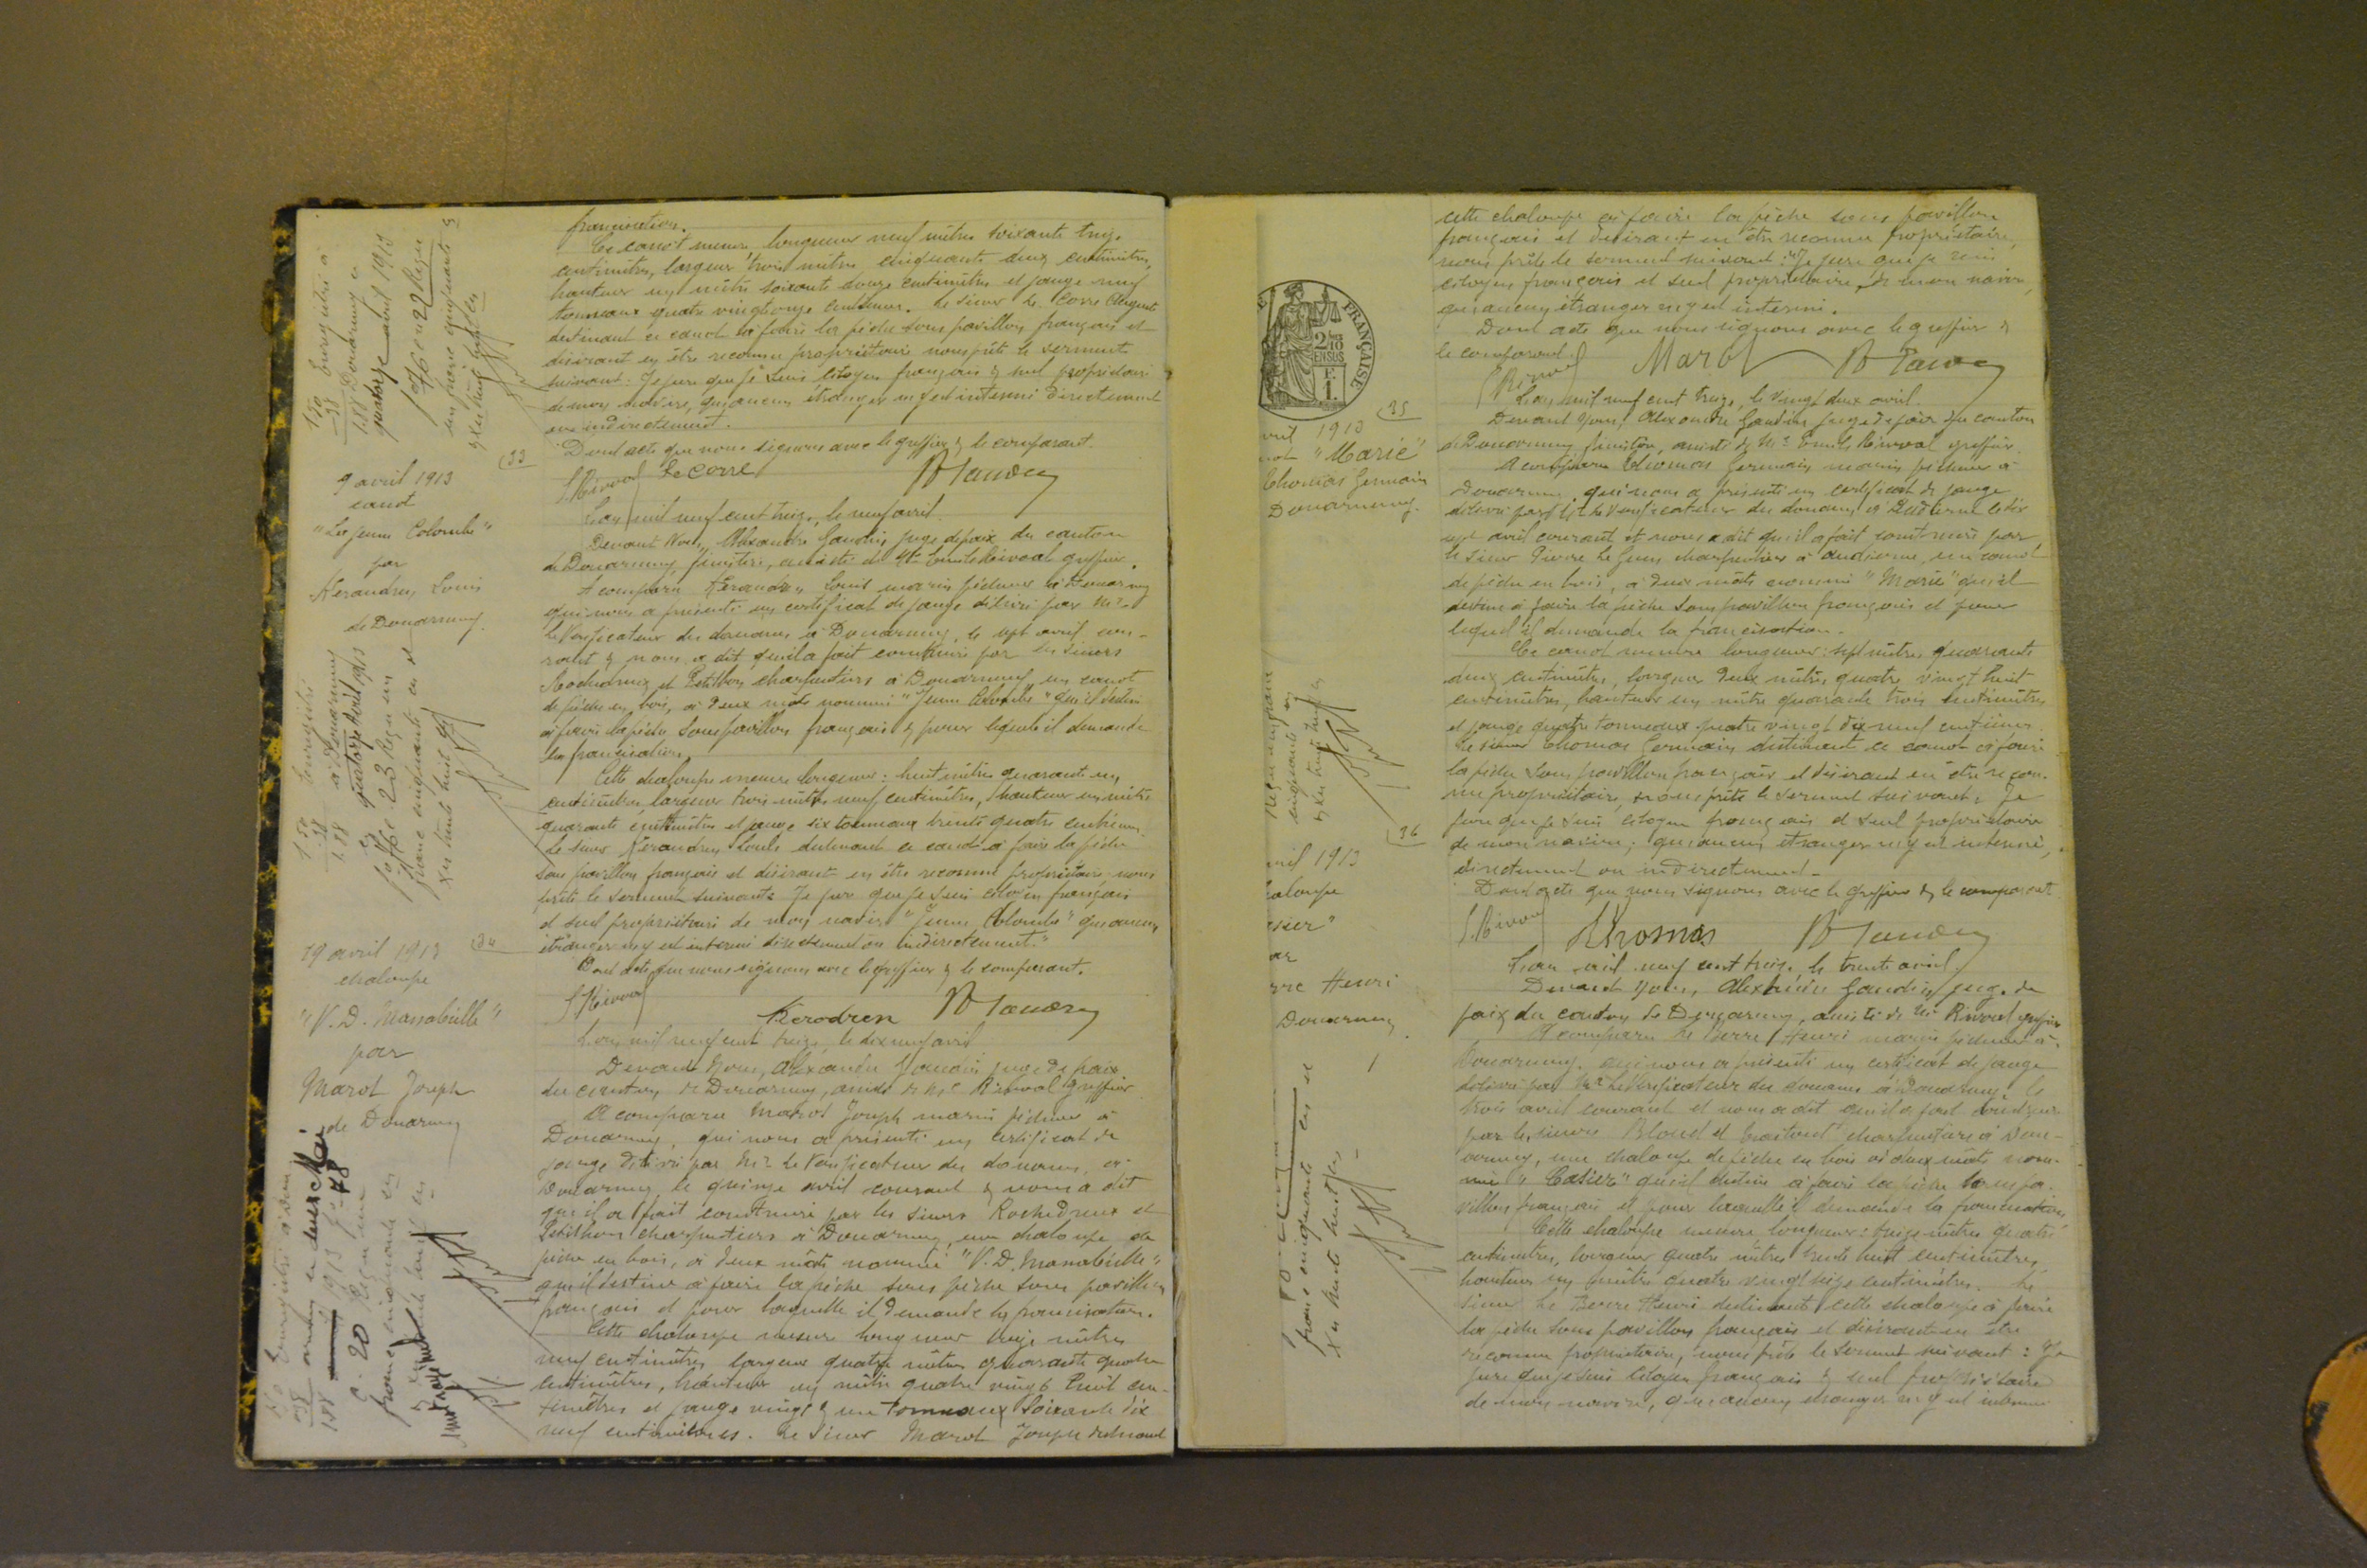 francisation.
Ce canot mesure longueur neuf mètres soixante treize
centimètres, largeur trois mètres cinquante deux centimètres,
hauteur un mètre soixante douze centimètres et jauge neuf
tonneaux quatre vingt onze centièmes. Le sieur Le Corre Auguste
destinant ce canot à faire la pêche sous pavillon français et
désirant en être reconnu propriétaire nous prête le serment
suivant: Je jure que je suis citoyen français & seul propriétaire
de mon navire, qu'aucun étranger n'y est intéressé directement
ou indirectement.
Dont acte que nous signons avec le greffier & le comparant.
Le Corre
33
9 avril 1913
canot
"La jeune Colombe"
par
Kerandren Louis
de Douarnenez
L'an mil neuf cent treize, le neuf avril.
Devant Nous, Alexandre Gaudin, juge de paix du canton
de Douarnenez, finistère, assisté de Me Emile Rivoal greffier.
A comparu Kerandren Louis marin pêcheur à Douarnenez
qui nous a présenté un certificat de jauge délivré par Mr
le Vérificateur des douanes à Douarnenez, le sept avril cou-
rant & nous a dit qu'il a fait construire par les sieurs
et Petitbon charpentiers à Douarnenez un canot
de pêche en bois, à deux mâts nommé "Jeune Colombe" qu'il destine
à faire la pêche sous pavillon français & pour lequel il demande
la francisation.
Cette chaloupe mesure longueur: huit mètres quarante un
centimètres, largeur trois mètres neuf centimètres, hauteur un mètre
quarante centimètres et jauge six tonneaux trente quatre centièmes.
Le sieur Kerandren Louis destinant ce canot à faire la pêche
sous pavillon français et désirant en être reconnu propriétaire nous
prête le serment suivant: Je jure que je suis citoyen français
et seul propriétaire de mon navire "Jeune Colombe" qu'aucun
étranger n'y est intéressé directement ou indirectement."
Dont acte que nous signons avec le greffier & le comparant.
Kerodren
34
19 avril 1913
chaloupe
"V. D. Massabielle"
par
Marot Joseph
de Douarnenez
L'an mil neuf cent treize, le dix neuf avril
Devant Nous, Alexandre Gaudin juge de paix
du canton de Douarnenez, assisté de Me Rivoal greffier
A comparu Marot Joseph marin pêcheur à
Douarnenez, qui nous a présenté un certificat de
jauge délivré par Mr le Vérificateur des douanes, à
Douarnenez le quinze avril courant & nous a dit
qu'il a fait construire par les sieurs et
Petitbon charpentiers à Douarnenez, une chaloupe de
pêche en bois, à deux mâts nommé "V. D. Massabielle"
qu'il destine à faire la pêche sous pêche sous pavillon
français et pour laquelle il demande la francisation.
Cette chaloupe mesure longueur treize mètres
neuf centimètres largeur quatre mètres quarante quatre
centimètres, hauteur un mètre quatre vingt huit cen-
timètres et jauge vingt & un tonneaux soixante dix
neuf centièmes. Le sieur Marot Joseph destinant
cette chaloupe à faire la pêche sous pavillon
français et désirant en être reconnu propriétaire,
nous prête le serment suivant: "Je jure que je suis
citoyen français et seul propriétaire de mon navire,
qu'aucun étranger n'y est intéressé.
Dont acte que nous signons avec le greffier &
le comparant.
Marot
FRANÇAISE
2/10 EN SUS
1 F.
35
1913
"Marie"
Thomas Germain
Douarnenez.
L'an mil neuf cent treize, le vingt deux avril.
Devant Nous, Alexandre Gaudin juge de paix du canton
de Douarnenez finistère, assisté de Me Emile Rivoal greffier.
A comparu Thomas Germain marin pêcheur à
Douarnenez, qui nous a présenté un certificat de jauge
délivré par Mr le Vérificateur des douanes, à Audierne le dix
sept avril courant et nous a dit qu'il a fait construire par
le sieur Pierre charpentier à Audierne, un canot
de pêche en bois, à deux mâts nommé "Marie" qu'il
destine à faire la pêche sous pavillon français et pour
lequel il demande la francisation.
Ce canot mesure longueur: sept mètres quarante
deux centimètres, largeur deux mètres quatre vingt huit
centimètres, hauteur un mètre quarante trois centimètres
et jauge quatre tonneaux quatre vingt dix neuf centièmes
Le sieur Thomas Germain destinant ce canot à faire
la pêche sous pavillon français et désirant en être recon-
nu propriétaire, nous prête le serment suivant: Je
jure que je suis citoyen français et seul propriétaire
de mon navire, qu'aucun étranger n'y est intéressé,
directement ou indirectement.
Dont acte que nous signons avec le greffier & le comparant
Thomas
36
avril 1913
Henri
Douarnenez
L'an mil neuf cent treize, le trente avril.
Devant Nous, Alexandre Gaudin, juge de
paix du canton de Douarnenez, assisté de Me Rivoal greffier
A comparu Le Berre Henri marin pêcheur à
Douarnenez, qui nous a présenté un certificat de jauge
délivré par Mr le Vérificateur des douanes à Douarnenez le
trois avril courant et nous a dit qu'il a fait construire
par les sieurs charpentiers à Douar-
nenez, une chaloupe de pêche en bois à deux mâts nom-
mée qu'il destine à faire la pêche sous pa-
villon français et pour laquelle il demande la francisation
Cette chaloupe mesure longueur: treize mètres quatre
centimètres, largeur quatre mètres trente huit centimètres,
hauteur un mètre quatre vingt seize centimètres. Le
sieur Le Berre Henri destinant cette chaloupe à faire
la pêche sous pavillon français et désirant en être
reconnu propriétaire, nous prête le serment suivant: Je
jure que je suis citoyen français & seul propriétaire
de mon navire, qu'aucun étranger n'y est intéressé